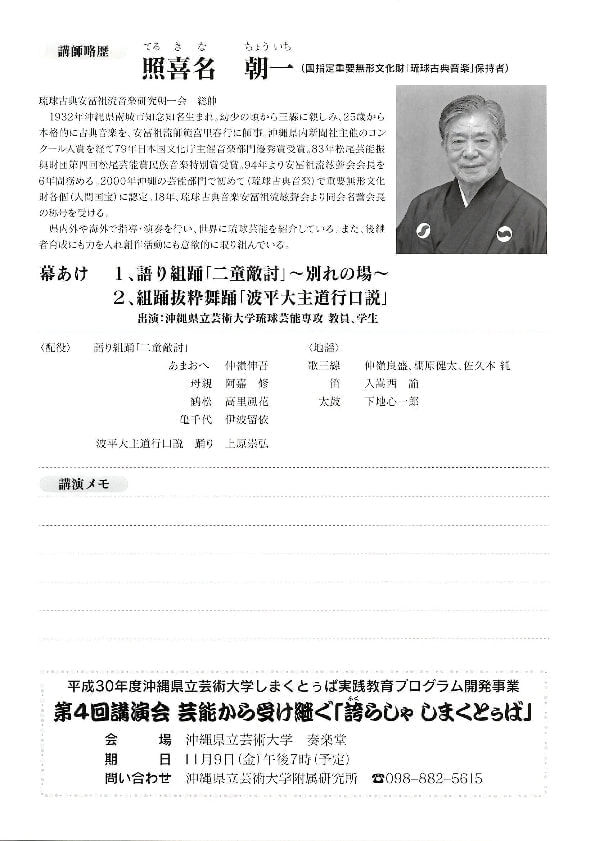 講師略歴
てるきな　ちょういち
照喜名　朝一（国指定重要無形文化財「琉球古典音楽」保持者）
琉球古典安冨祖流音楽研究朝一会　総帥
1932年沖縄県南城市知念知名生まれ。幼少の頃から三線に親しみ、25歳から
本格的に古典音楽を、安冨祖流師範宮里春行に師事。沖縄県内新聞社主催のコン
クール入賞を経て79年日本国文化庁主催音楽部門優秀賞受賞。83年松尾芸能振
興財団第四回松尾芸能賞民族音楽特別賞受賞。94年より安冨祖流絃聲会会長を
6年間務める。2000年沖縄の芸能部門で初めて（琉球古典音楽）で重要無形文化
財各個（人間国宝）に認定。18年、琉球古典音楽安冨祖流絃聲会より同会名誉会長
の称号を受ける。
県内外や海外で指導・演奏を行い、世界に琉球芸能を紹介している。また、後継
者育成にも力を入れ創作活動にも意欲的に取り組んでいる。
幕あけ　1、語り組踊「二童敵討」～別れの場～
2、組踊抜粋舞踊「波平大主道行口説」
出演：沖縄県立芸術大学琉球芸能専攻 教員、学生
〈配役〉　語り組踊「二童敵討」
あまおへ　仲嶺伸吾
母親　阿嘉　修
鶴松　高里風花
亀千代　伊波留依
波平大主道行口説　踊り　上原崇弘
〈地謡〉
歌三線　仲嶺良盛、棚原健太、佐久本 純
笛　入嵩西　諭
太鼓　下地心一郎
講演メモ
平成30年度沖縄県立芸術大学しまくとぅば実践教育プログラム開発事業
ふく
第4回講演会 芸能から受け継ぐ「誇らしゃ しまくとぅば」
会　場　沖縄県立芸術大学　奏楽堂
期　日　11月9日（金）午後7時（予定）
問い合わせ　沖縄県立芸術大学附属研究所　☎098-882-5615